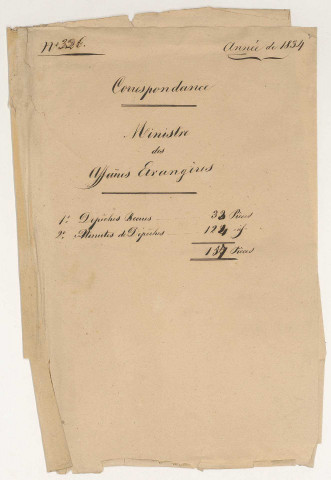 Nº 326.
Année de 1834
Correspondance
Ministre
des
Affaires Etrangères
1º Dépêches Recues 33 Pièces
2º Minutes de Dépêches 124 "
157 Pièces